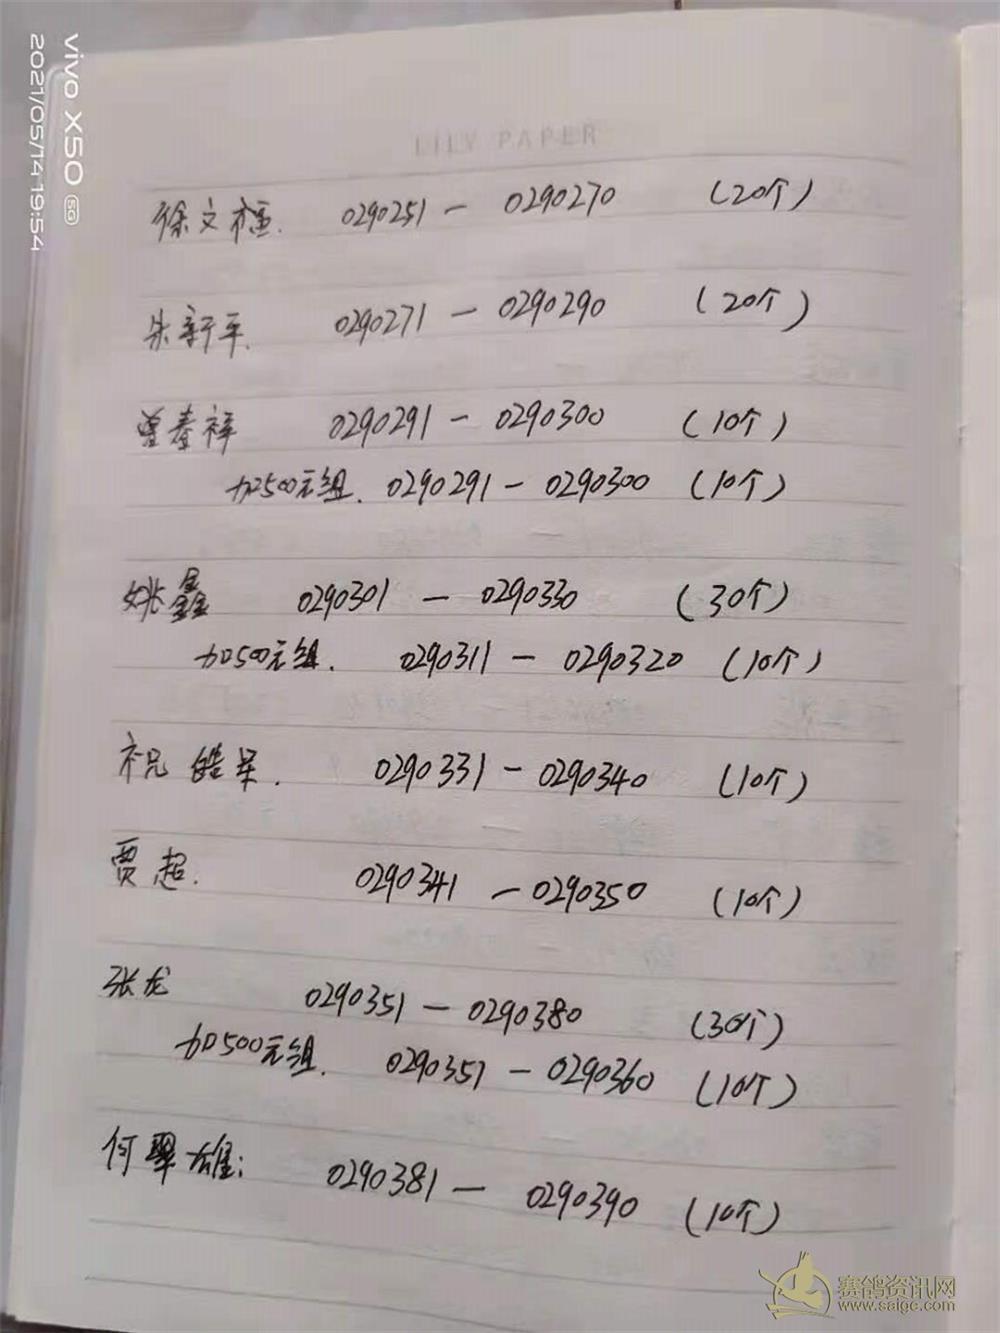 LILY PAPER
徐文 0290251 — 0290270 (20个)
朱新平. 0290271 — 0290290 (20个)
曾春祥 0290291 — 0290300 (10个)
加500元组. 0290291 — 0290300 (10个)
姚鑫 0290301 — 0290330 (30个)
加500元组. 0290311 — 0290320 (10个)
祝皓 0290331 — 0290340 (10个)
贾超. 0290341 — 0290350 (10个)
张龙 0290351 — 0290380 (30个)
加500元组. 0290351 — 0290360 (10个)
何翠雄: 0290381 — 0290390 (10个)
vivo X50 5G
2021/05/14 19:54
赛鸽资讯网
www.saigc.com